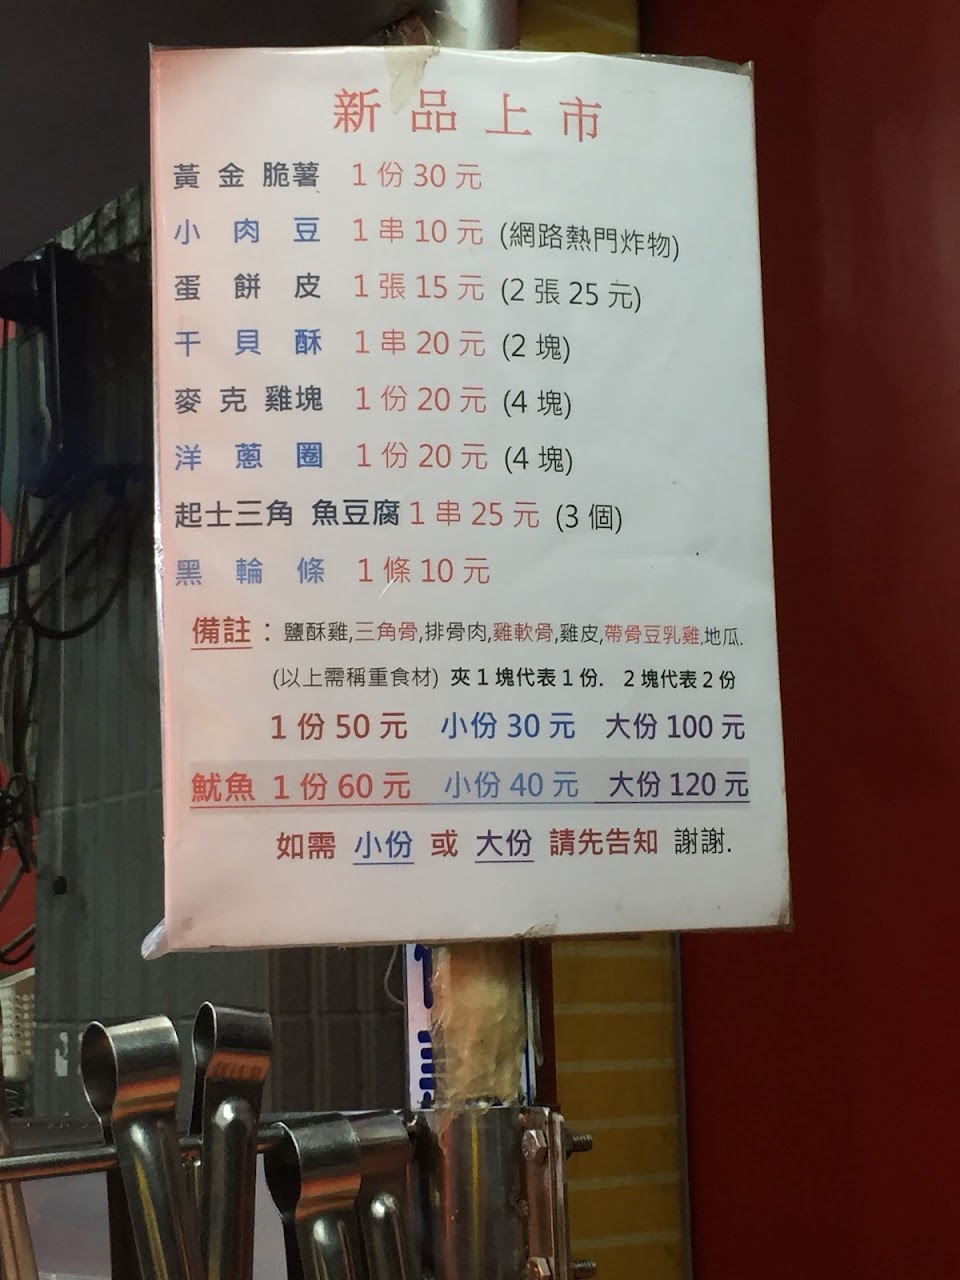 新品上市
黃金 脆薯 1份30元
小肉豆 1串10元 (網路熱門炸物)
蛋餅皮 1張15元 (2張25元)
干貝酥 1串20元 (2塊)
麥克雞塊 1份20元 (4塊)
洋蔥圈 1份20元 (4塊)
起士三角 魚豆腐 1串25元 (3個)
黑輪條 1條10元
備註：鹽酥雞,三角骨,排骨肉,雞軟骨,雞皮,帶骨豆乳雞,地瓜.
(以上需稱重食材) 夾1塊代表1份. 2塊代表2份
1份50元 小份30元 大份100元
魷魚 1份60元 小份40元 大份120元
如需 小份 或 大份 請先告知 謝謝.